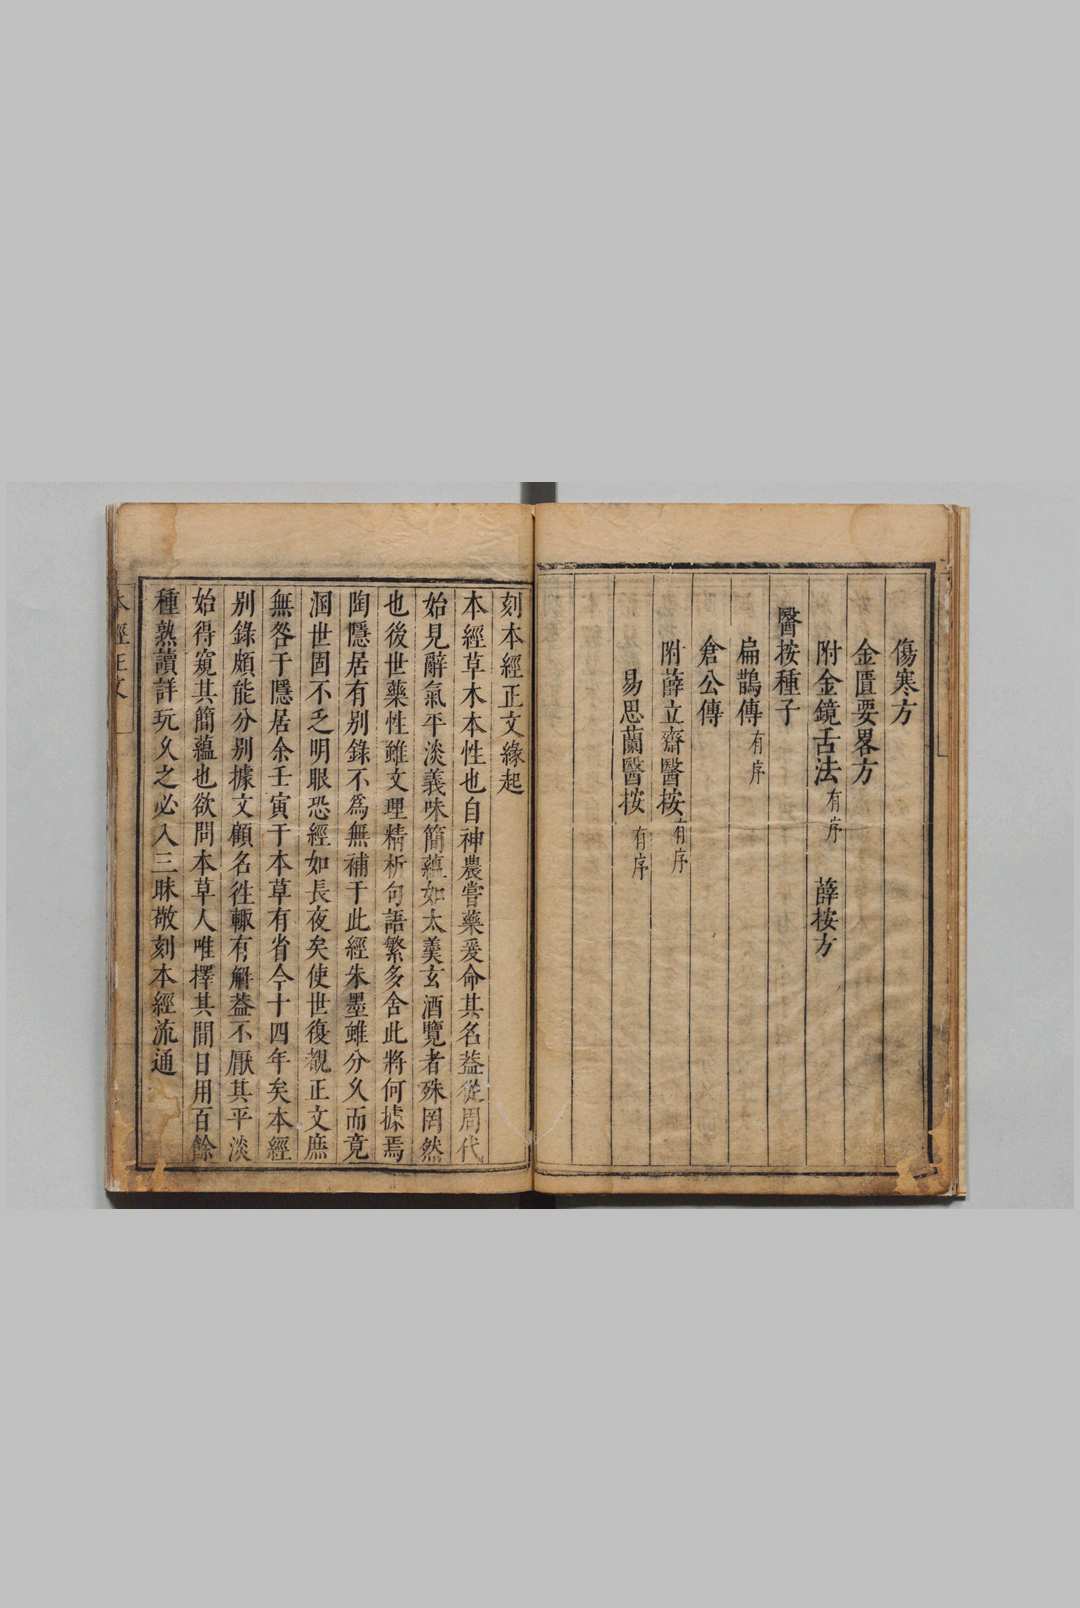 傷寒方
金匱要畧方
附金鏡舌法有序　薛按方
醫按種子
扁鵲傳有序
倉公傳
附薛立齋醫按有序
易思蘭醫按有序
刻本經正文緣起
本經草木本性也自神農嘗藥爰命其名葢從周代
始見辭氣平淡義味簡蘊如太羹玄酒覽者殊罔然
也後世藥性雖文理精析句語繁多舍此將何據焉
陶隱居有别錄不爲無補于此經朱墨雖分久而竟
溷世固不乏明眼恐經如長夜矣使世復覩正文庶
無咎于隱居余壬寅于本草有省今十四年矣本經
别錄頗能分别據文顧名徃輙有解葢不厭其平淡
始得窺其簡蘊也欲問本草人唯擇其間日用百餘
種熟讀詳玩久之必入三昧敬刻本經流通
本經正文
一